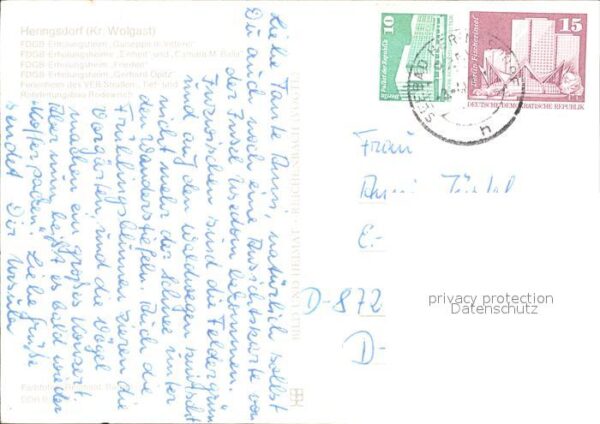 Heringsdorf (Kr. Wolgast)
FDGB-Erholungsheim „Giuseppe di Vittorio"
FDGB-Erholungsheime „Einheit" und
FDGB-Erholungsheim „Frieden"
FDGB-Erholungsheim „Gerhard Opitz"
Ferienheim des VEB Straßen-, Tief- und
Liebe Tante Anni, natürlich sollst
Du auch noch eine Ansichtskarte von
der Insel Usedom bekommen.
Inzwischen sind die Felder grün
und auf den Waldwegen knirscht
nicht mehr der Schnee unter
den Wanderstiefeln. Auch die
Frühlingsblumen zieren die
Vorgärten, und die Vögel
machen ein großes Konzert.
Aber nun heißt es bald wieder
„Koffer packen". Liebe Grüße
sendet Dir Ursula
BILD UND HEIMAT REICHENBACH
10
Palast der Republik
Berlin
DDR
15
DEUTSCHE DEMOKRATISCHE REPUBLIK
SEEBAD
Frau
Anni
E.-
D-872
D-
privacy protection
Datenschutz